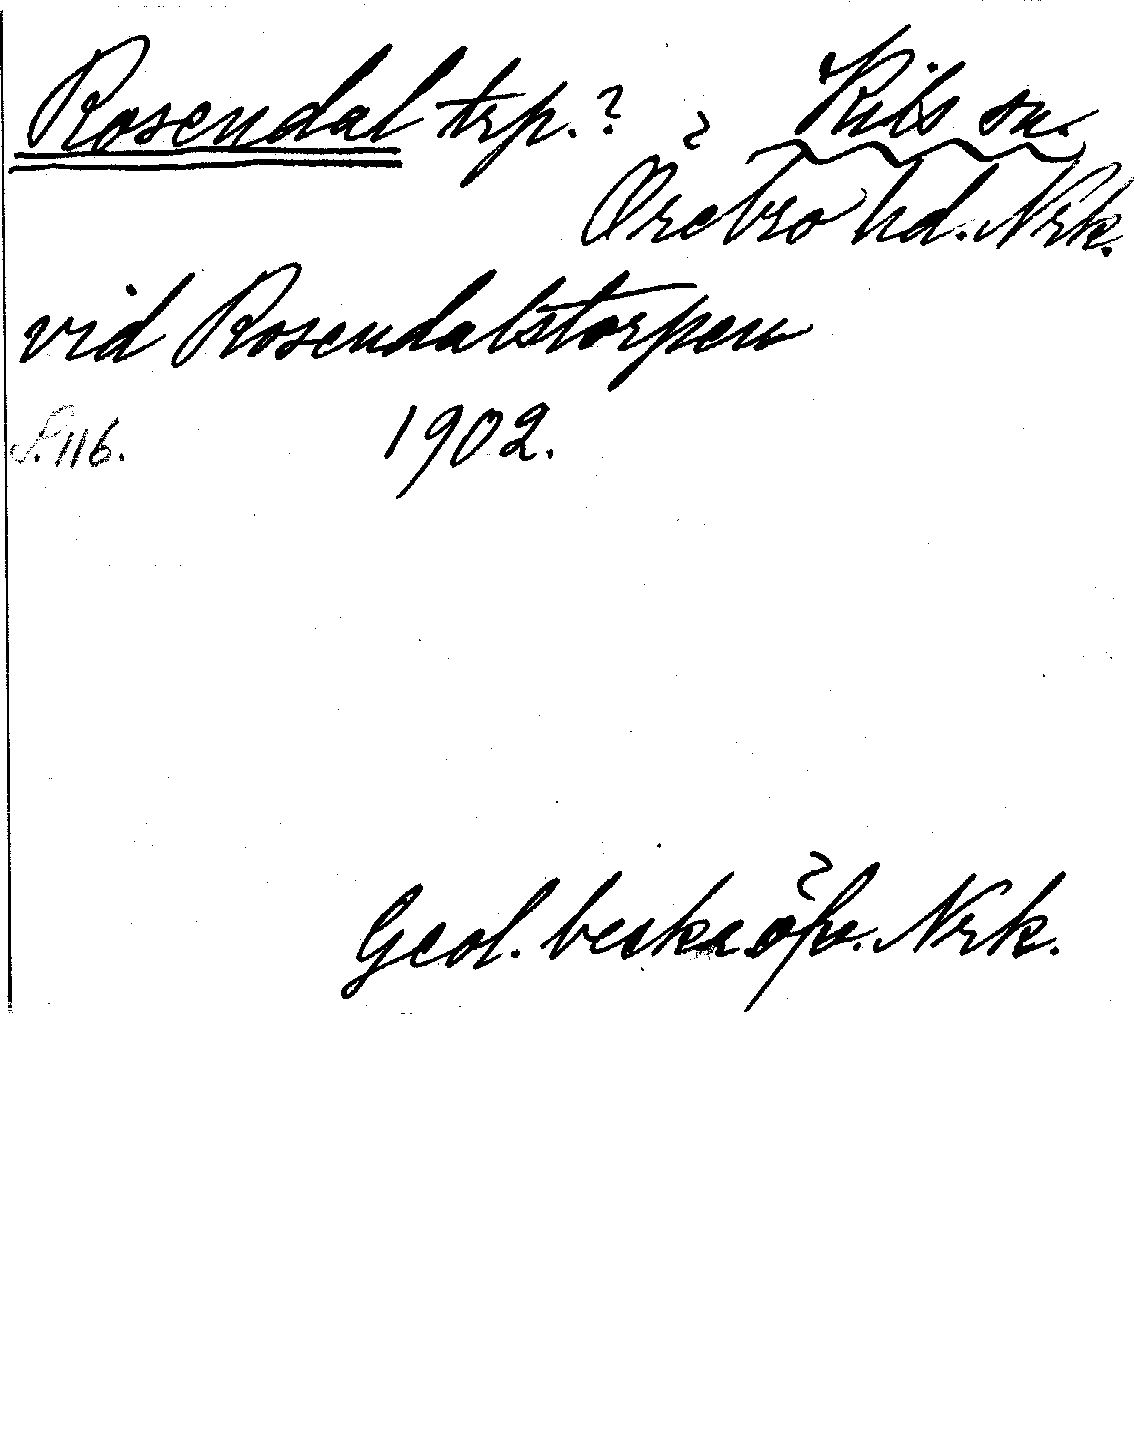 Rosendal trp.? Kils sn.
Örebro hd. Nrk.
vid Rosendalstorpen
S. 116. 1902.
Geol. beskr. öfv. Nrk.